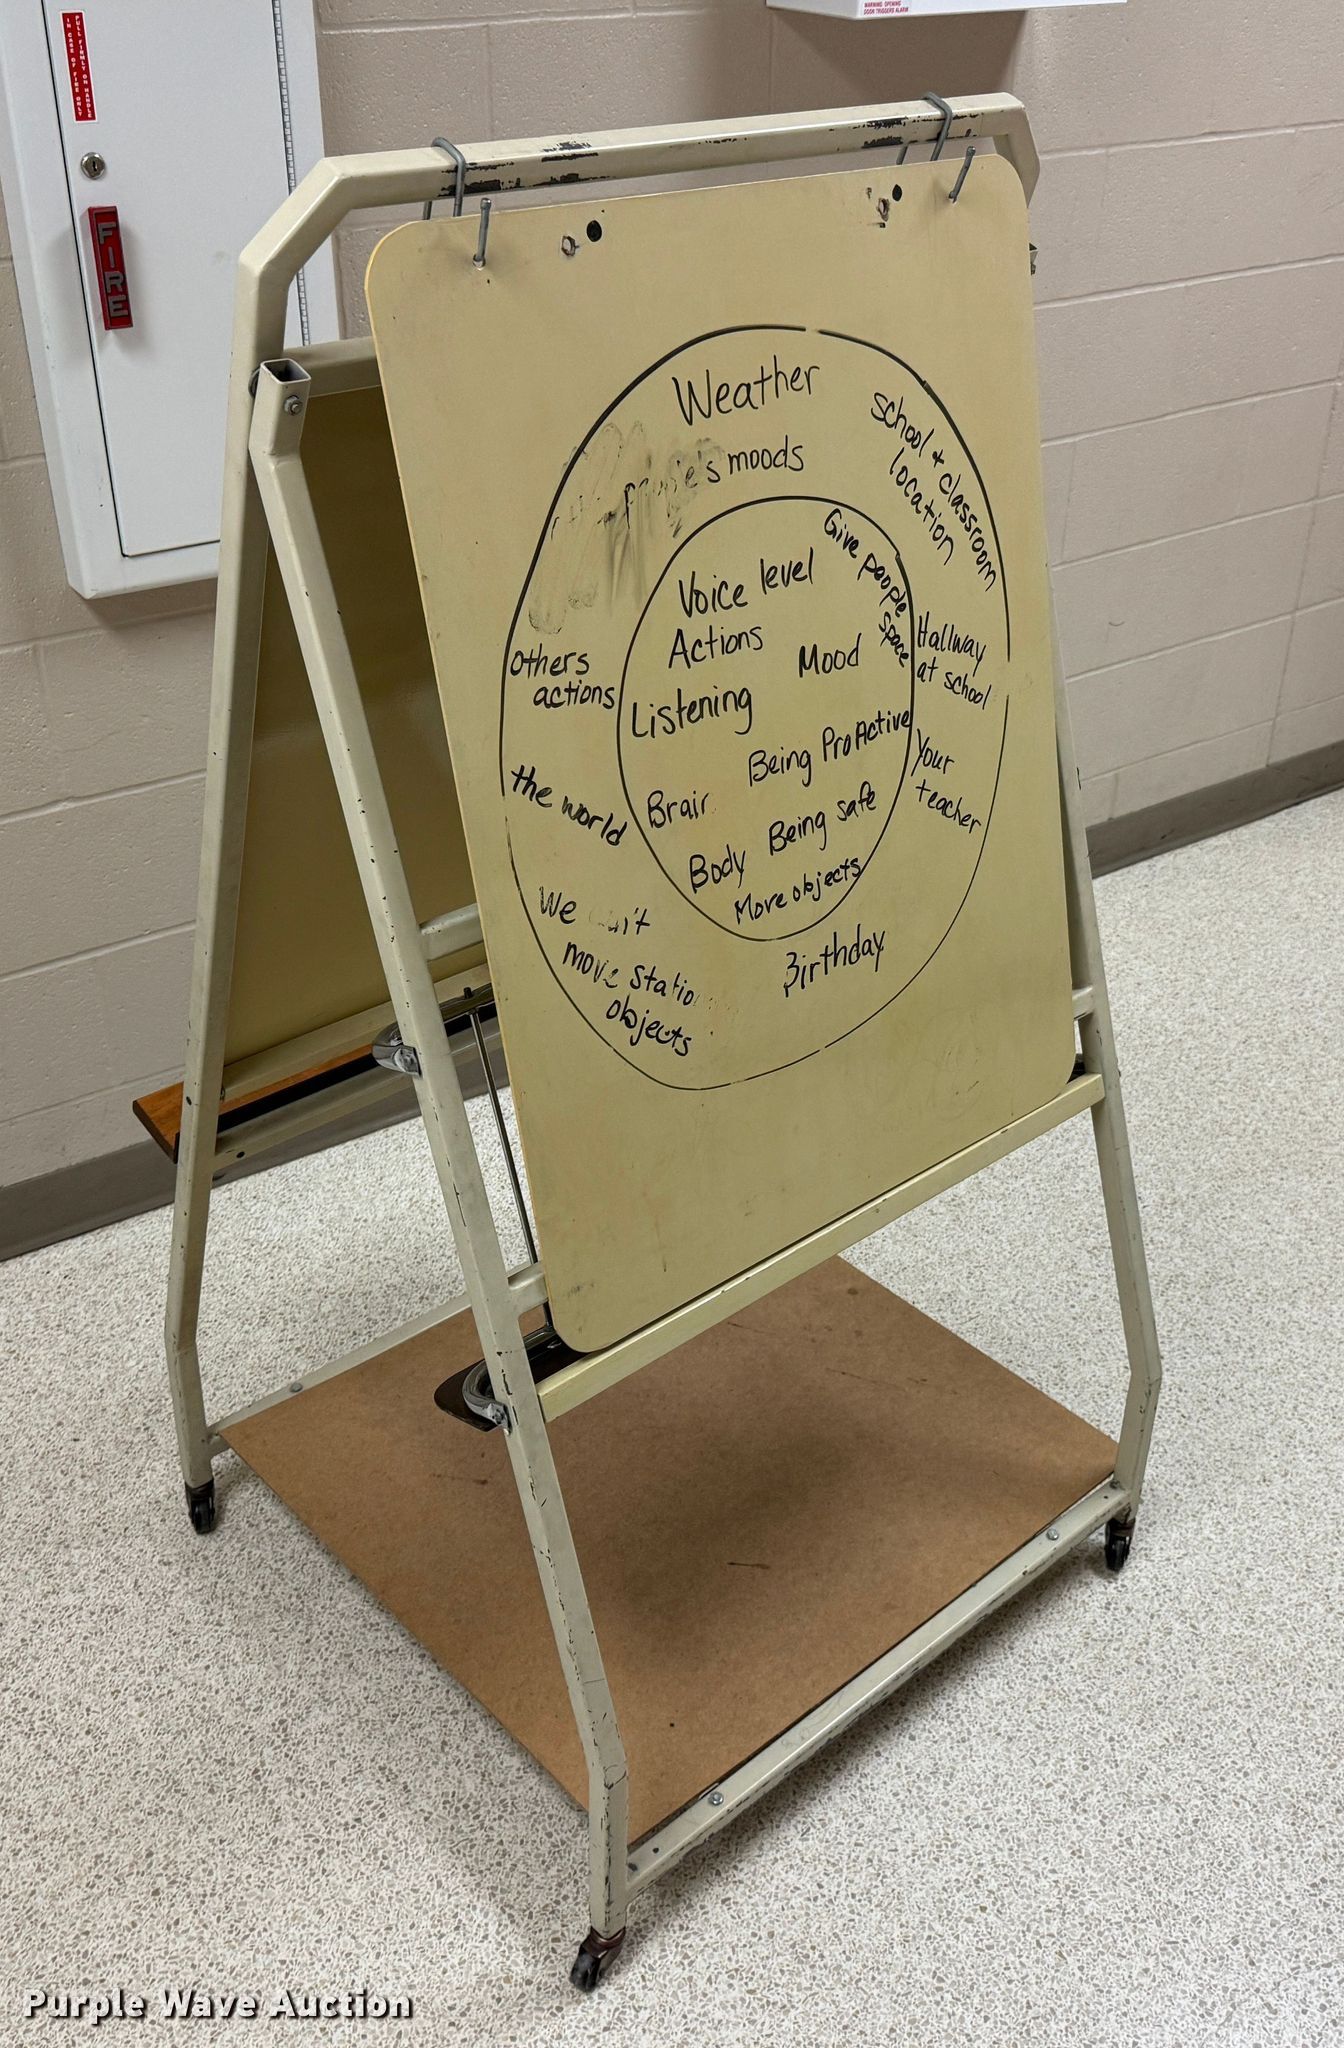 PULL FIRMLY ON HANDLE
IN CASE OF FIRE ONLY
FIRE
WARNING: OPENING
DOOR TRIGGERS ALARM
Weather
moods
school + classroom
location
Others
actions
the world
We
move
objects
Hallway
at school
your
teacher
Birthday
Give people
space
Voice level
Actions
Mood
Listening
Being ProActive
Brain
Being safe
Body
More objects
Purple Wave Auction